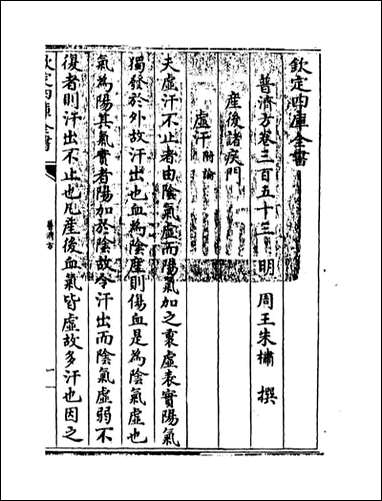 欽定四庫全書
普濟方卷三百五十三 明 周王朱橚 撰
產後諸疾門
虚汗附論
夫虚汗不止者由陰氣虚而陽氣加之裏虚表實陽氣
獨發於外故汗出也血為陰產則傷血是為陰氣虚也
氣為陽其氣實者陽加於陰故令汗出而陰氣虚弱不
復者則汗出不止也凡產後血氣皆虚故多汗也因之
欽定四庫全書
普濟方
一